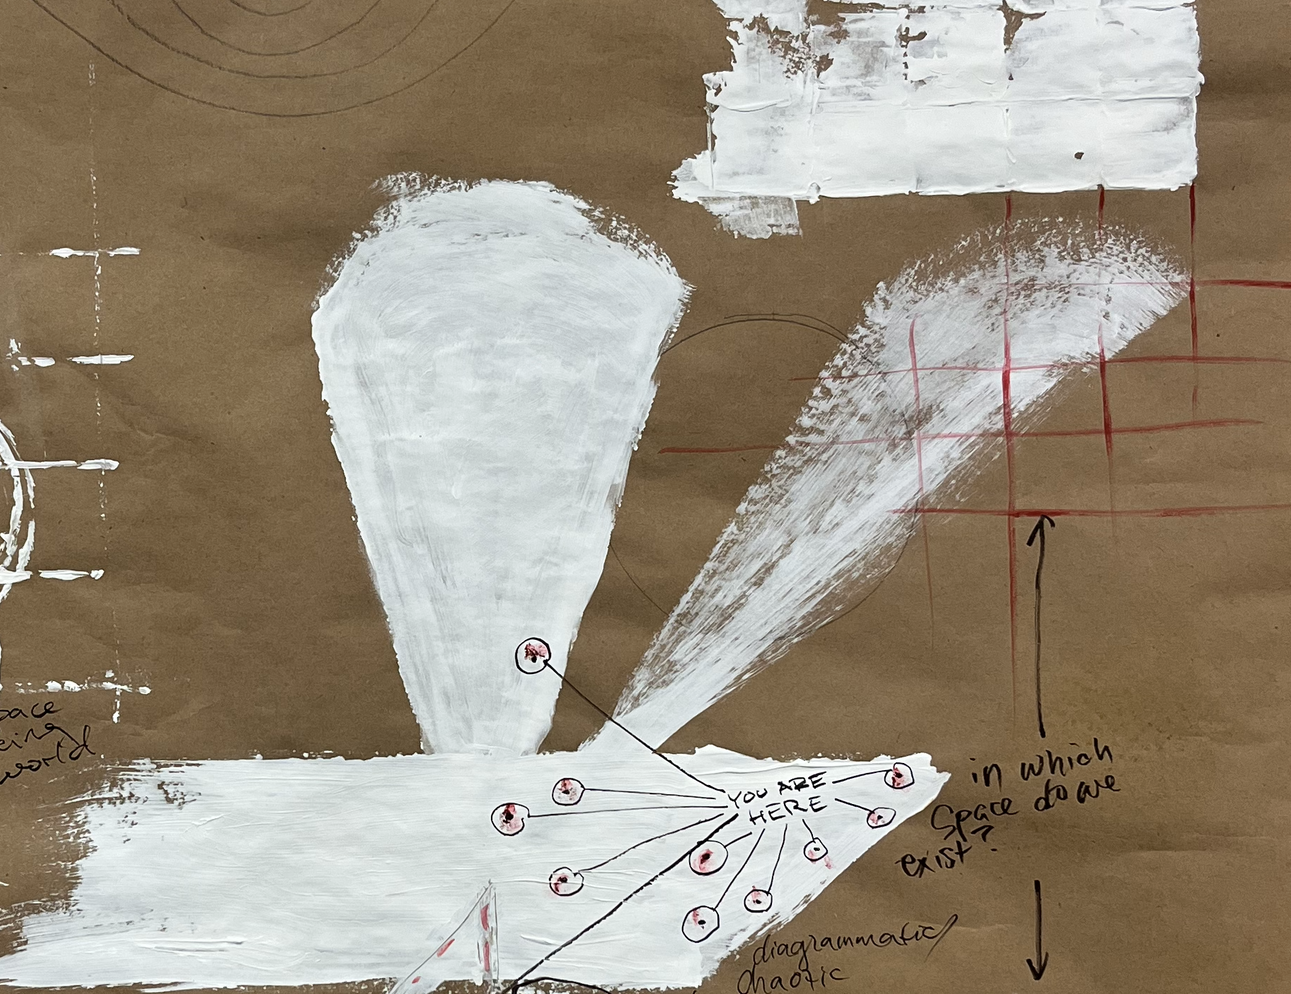 eing
world
YOU ARE
HERE
in which
Space do we
exist?
diagrammatic
chaotic